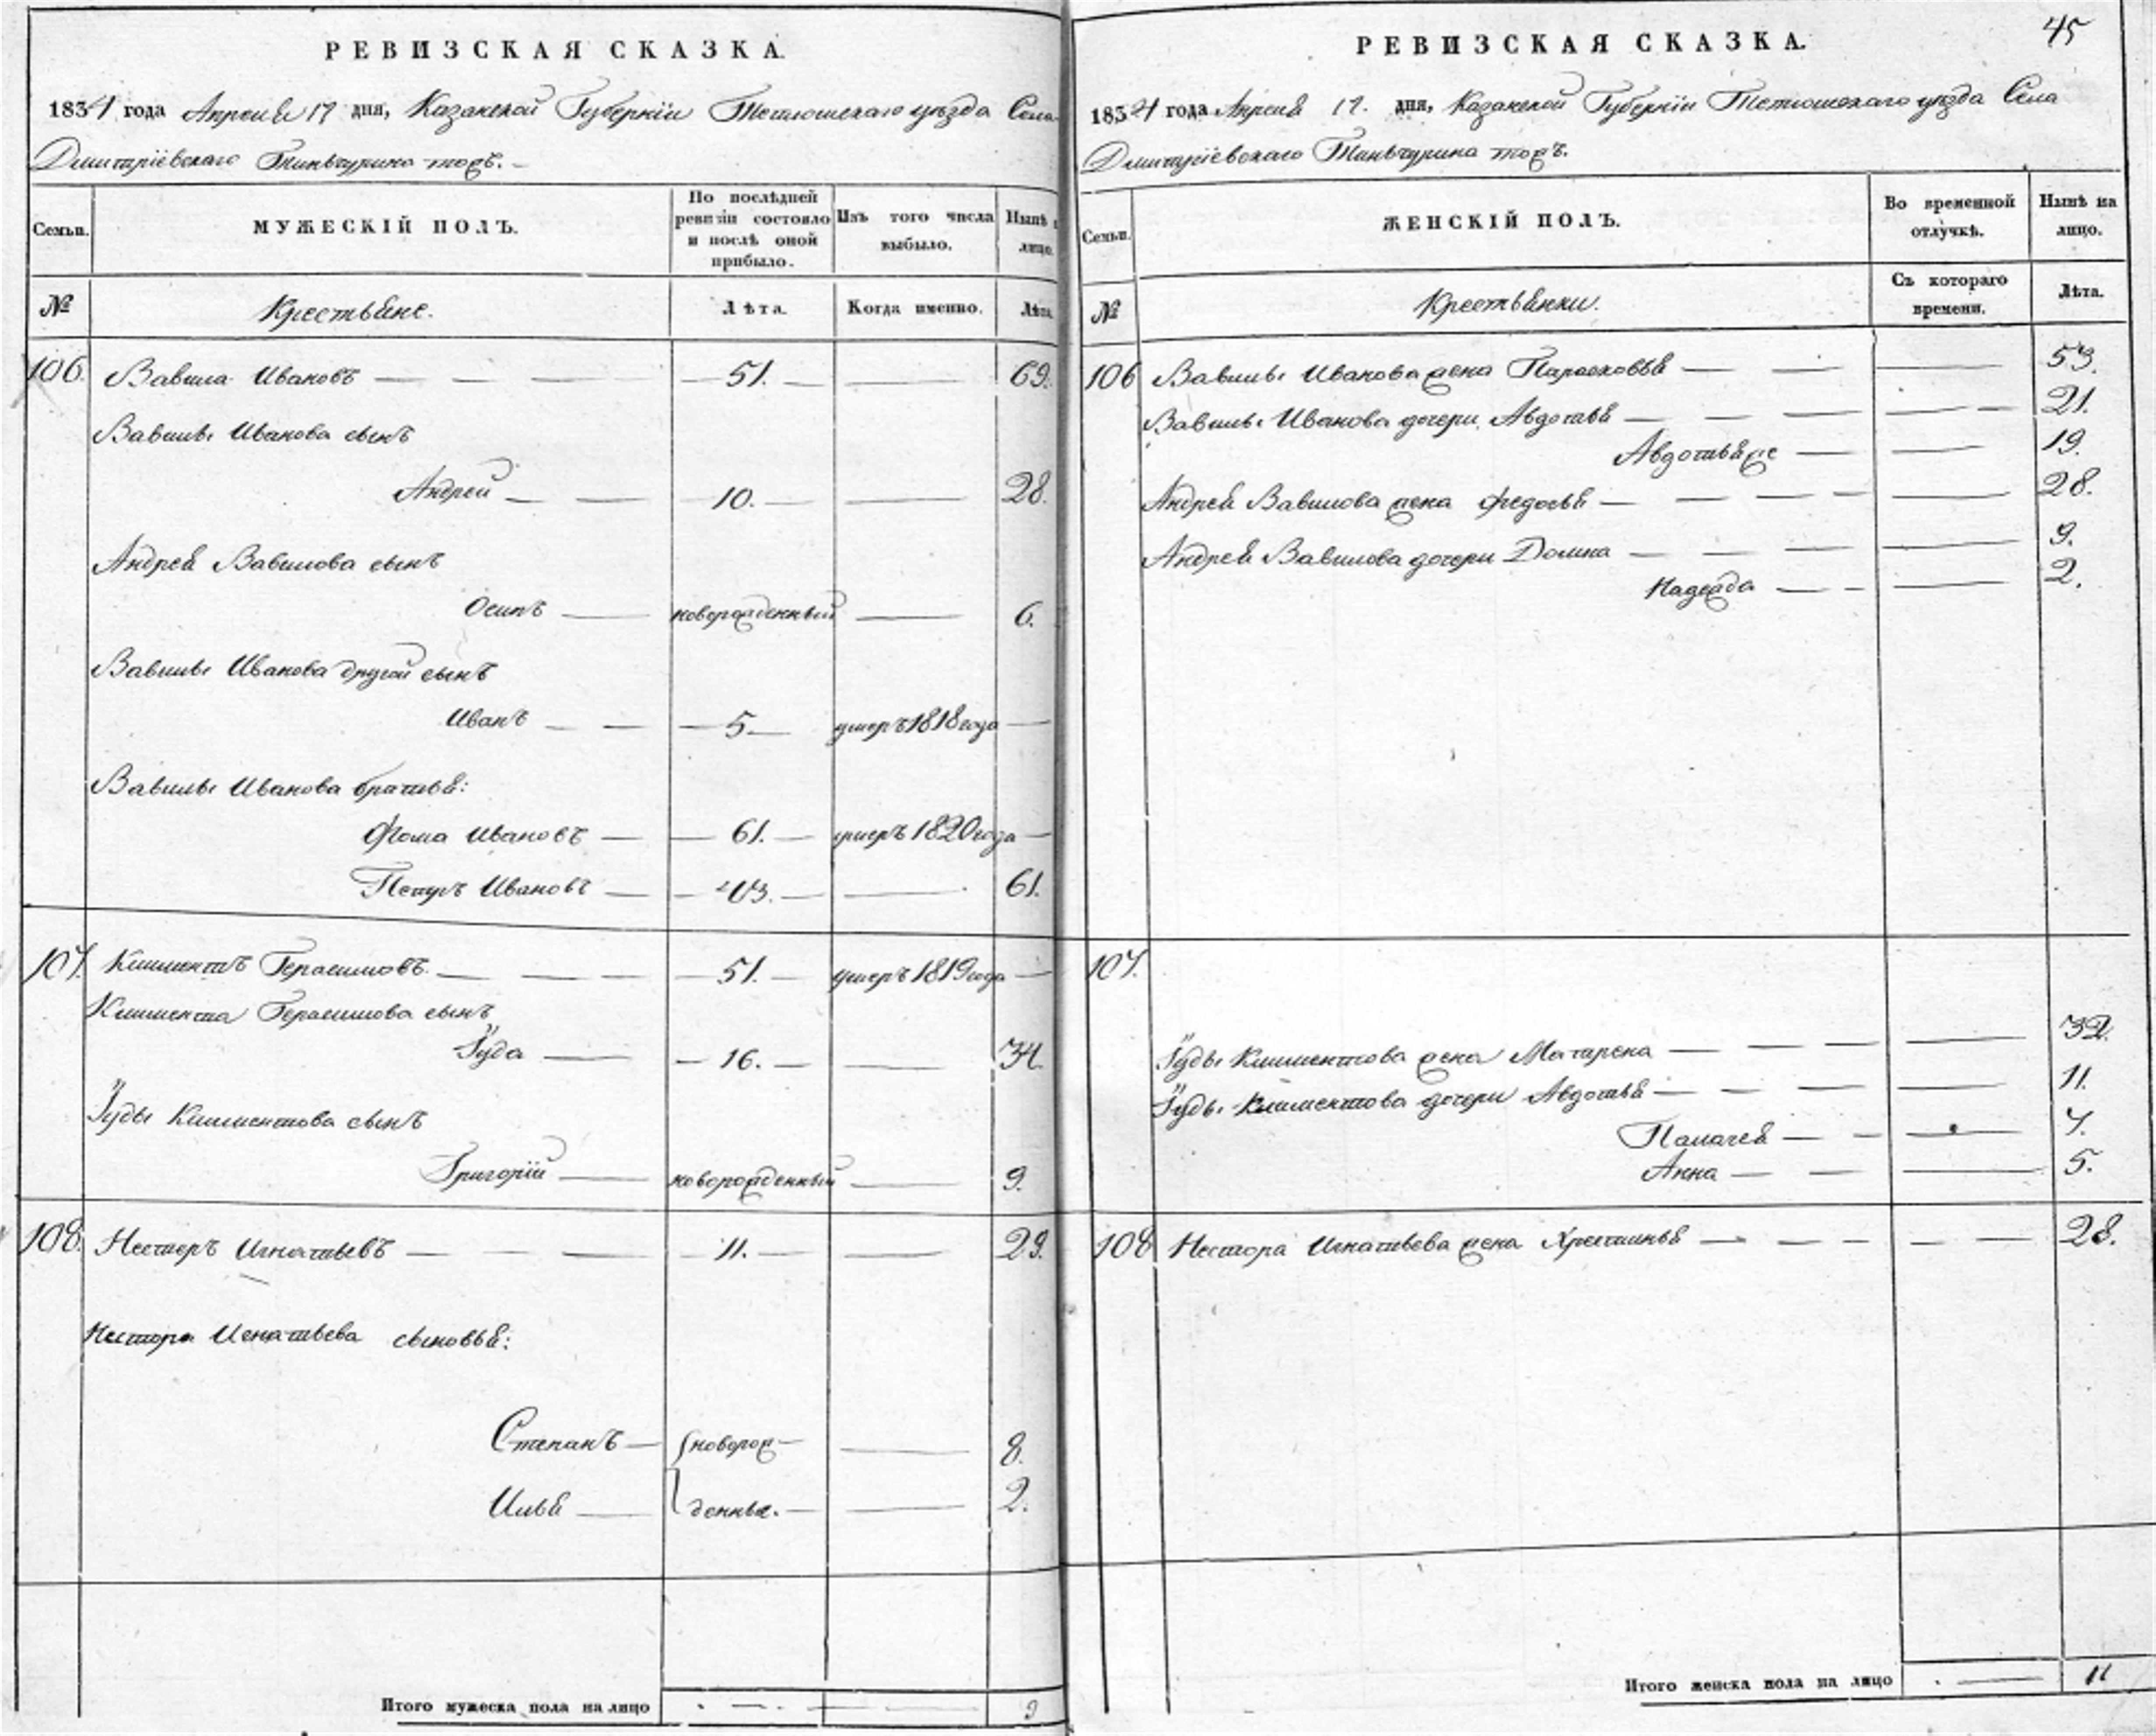 РЕВИЗСКАЯ СКАЗКА.
1834 года Апреля 17 дня, Казанской Губернiи Тетюшскаго уѣзда Села
Дмитрiевскаго Тинчурина тожъ.
Семьи.
МУЖЕСКІЙ ПОЛЪ.
По послѣдней ревизіи состояло и послѣ оной прибыло.
Изъ того числа выбыло.
Нынѣ
лицо.
№
Крестьяне.
Лѣта.
Когда именно.
Лѣта.
106. Вавила Ивановъ — 51. — 69.
Вавилы Иванова сынъ
Андрей — 10. — 28.
Андрея Вавилова сынъ
Осипъ — новорожденный — 6.
Вавилы Иванова другой сынъ
Иванъ — 5 — умеръ 1818 года —
Вавилы Иванова братья:
Фома Ивановъ — 61. — умеръ 1820 года —
Петръ Ивановъ — 43. — 61.
107. Климентъ Герасимовъ — 51. — умеръ 1819 года —
Климента Герасимова сынъ
Іуда — 16. — 34.
Іуды Климентова сынъ
Григорій — новорожденный — 9.
108. Нестеръ Игнатьевъ — 11. — 29.
Нестора Игнатьева сыновья:
Степанъ — новорож— — 8.
Илья — денные. — 2.
Итого мужеска пола на лицо — 9
45
РЕВИЗСКАЯ СКАЗКА.
1834 года Апреля 17. дня, Казанской Губернiи Тетюшскаго уѣзда Села
Дмитрiевскаго Тинчурина тожъ.
Семьи.
ЖЕНСКІЙ ПОЛЪ.
Во временной отлучкѣ.
Нынѣ на лицо.
№
Крестьянки.
Съ котораго времени.
Лѣта.
106 Вавилы Иванова жена Парасковья — 53.
Вавилы Иванова дочери Авдотья — 21.
Авдотья же — 19.
Андрея Вавилова жена Федосья — 28.
Андрея Вавилова дочери Домна — 9.
Надежда — 2.
107.
Іуды Климентова жена Матрена — 32.
Іуды Климентова дочери Авдотья — 11.
Палагея — 7.
Анна — 5.
108 Нестора Игнатьева жена Хрестинья — 28.
Итого женска пола на лицо — 11